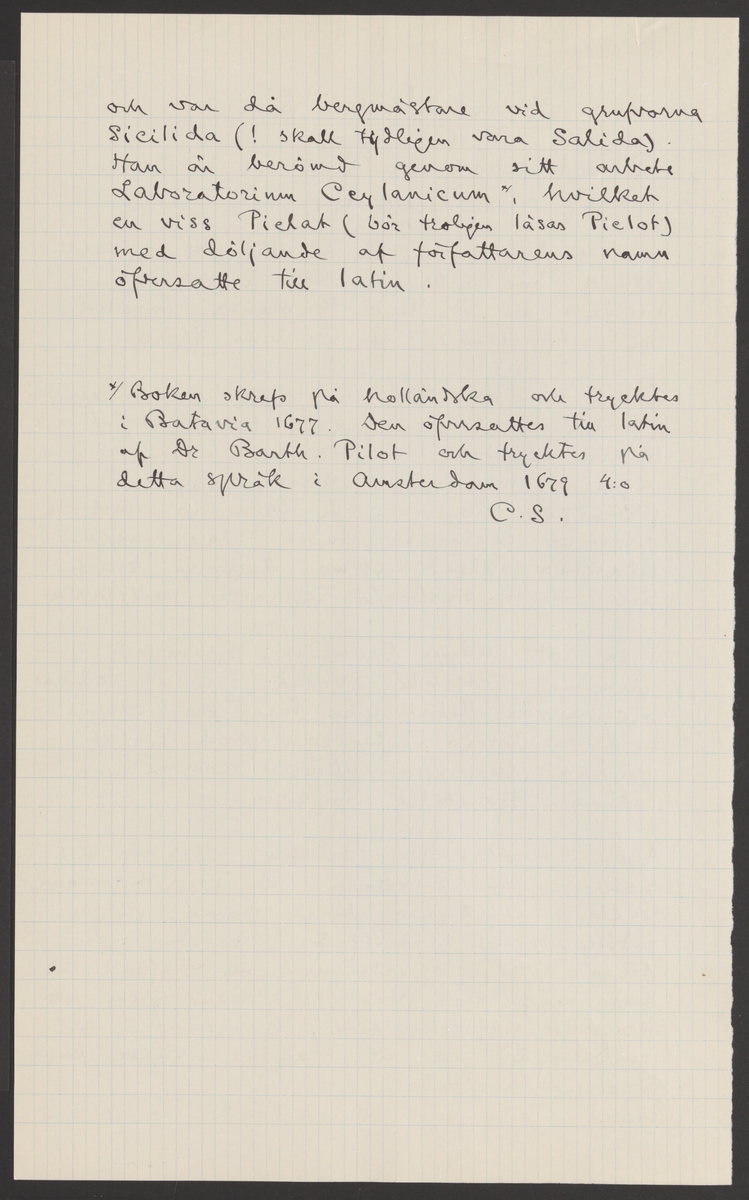 och var då bergmästare vid grufvorna
Sicilida (! skall tydligen vara Salida).
Han är berömd genom sitt arbete
Laboratorium Ceylanicum x/, hvilket
en viss Pielat (bör troligen läsas Pielot)
med döljande af författarens namn
öfversatte till latin.
x/ Boken skrefs på holländska och trycktes
i Batavia 1677. Den öfversattes till latin
af Dr Barth. Pilot och trycktes på
detta språk i Amsterdam 1679 4:o
C.S.